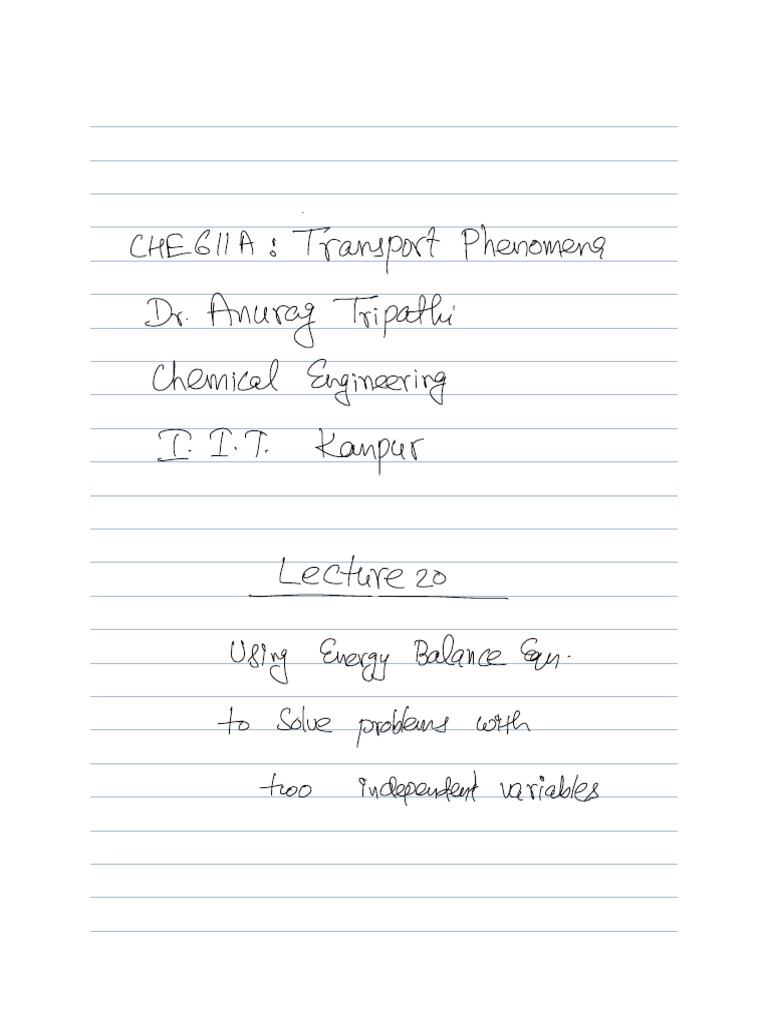 CHE611A: Transport Phenomena
Dr. Anurag Tripathi
Chemical Engineering
I.I.T. Kanpur
Lecture 20
Using Energy Balance Eqn.
to solve problems with
two independent variables